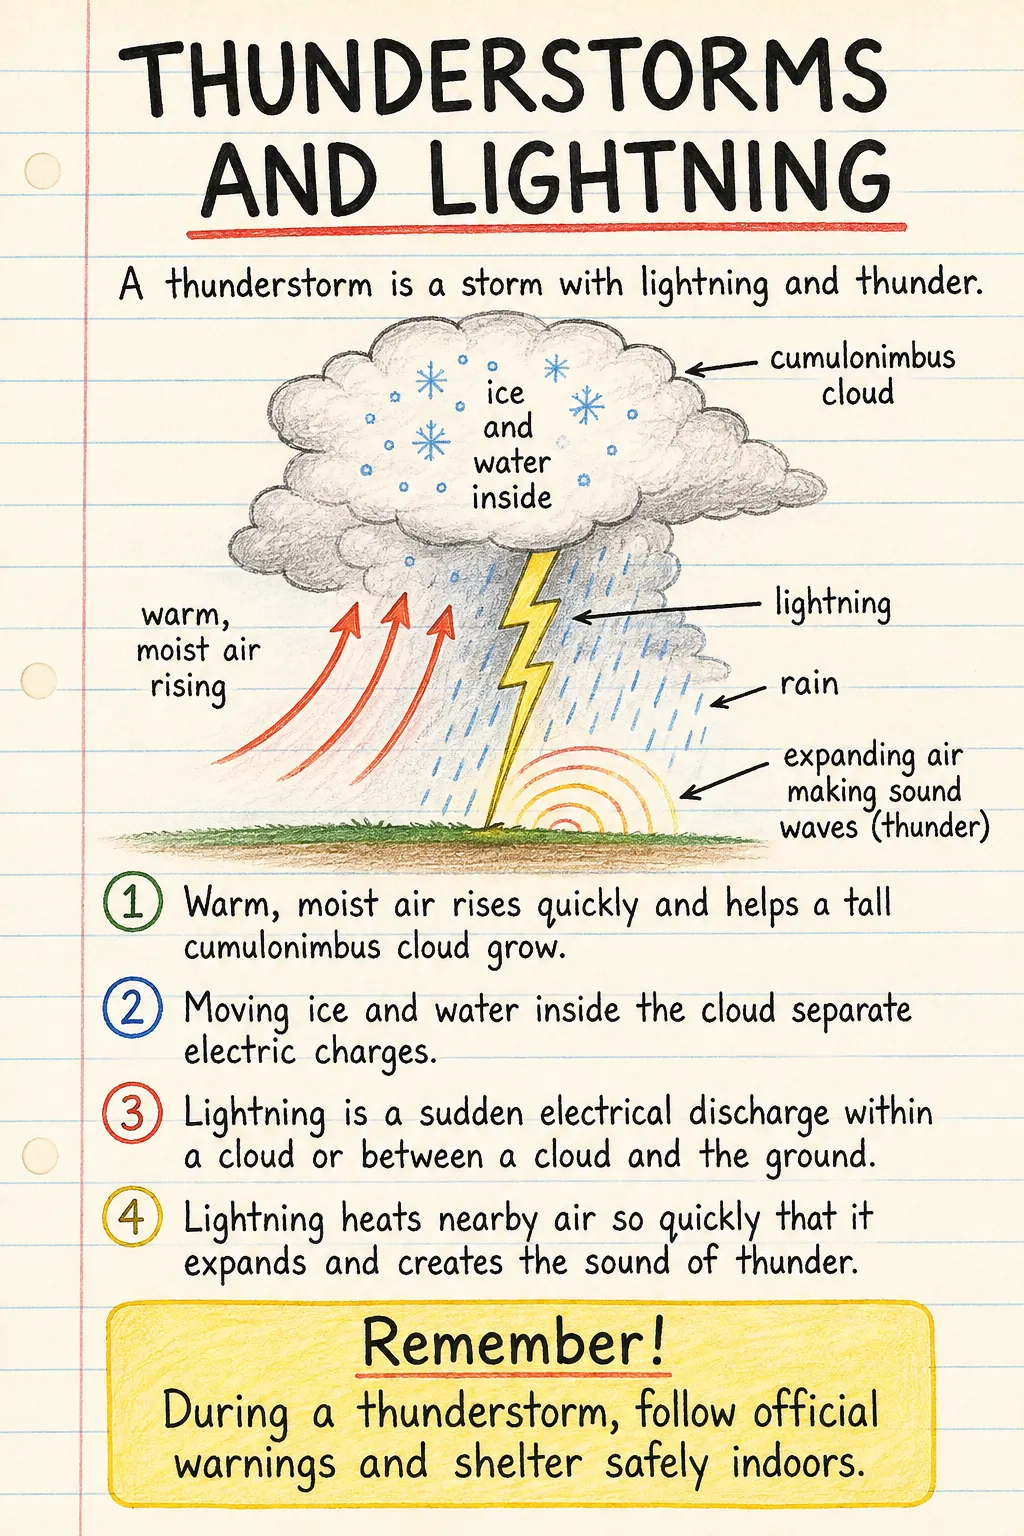 THUNDERSTORMS
AND LIGHTNING
A thunderstorm is a storm with lightning and thunder.
cumulonimbus
cloud
ice
and
water
inside
warm,
moist air
rising
lightning
rain
expanding air
making sound
waves (thunder)
1 Warm, moist air rises quickly and helps a tall
cumulonimbus cloud grow.
2 Moving ice and water inside the cloud separate
electric charges.
3 Lightning is a sudden electrical discharge within
a cloud or between a cloud and the ground.
4 Lightning heats nearby air so quickly that it
expands and creates the sound of thunder.
Remember!
During a thunderstorm, follow official
warnings and shelter safely indoors.